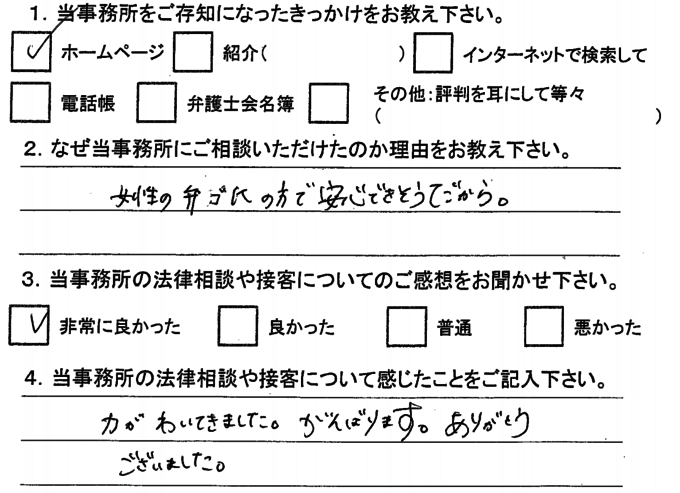 1. 当事務所をご存知になったきっかけをお教え下さい。
ホームページ 紹介( ) インターネットで検索して
電話帳 弁護士会名簿 その他:評判を耳にして等々
( )
2. なぜ当事務所にご相談いただけたのか理由をお教え下さい。
女性の弁ゴ氏の方で安心できそうでだから。
3. 当事務所の法律相談や接客についてのご感想をお聞かせ下さい。
非常に良かった 良かった 普通 悪かった
4. 当事務所の法律相談や接客について感じたことをご記入下さい。
力がわいてきました。がんばります。ありがとう
ございました。